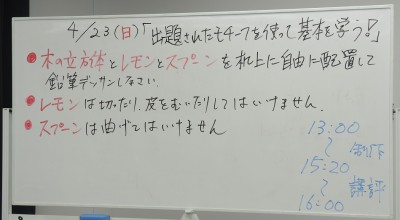 4/23(日)「出題されたモチーフを使って基本を学う!」
●木の立方体とレモンとスプーンを机上に自由に配置して
鉛筆デッサンしなさい.
●レモンは切ったり,皮をむいたりしてはいけません.
●スプーンは曲げてはいけません
13:00
〜制作
15:20
〜講評
16:00